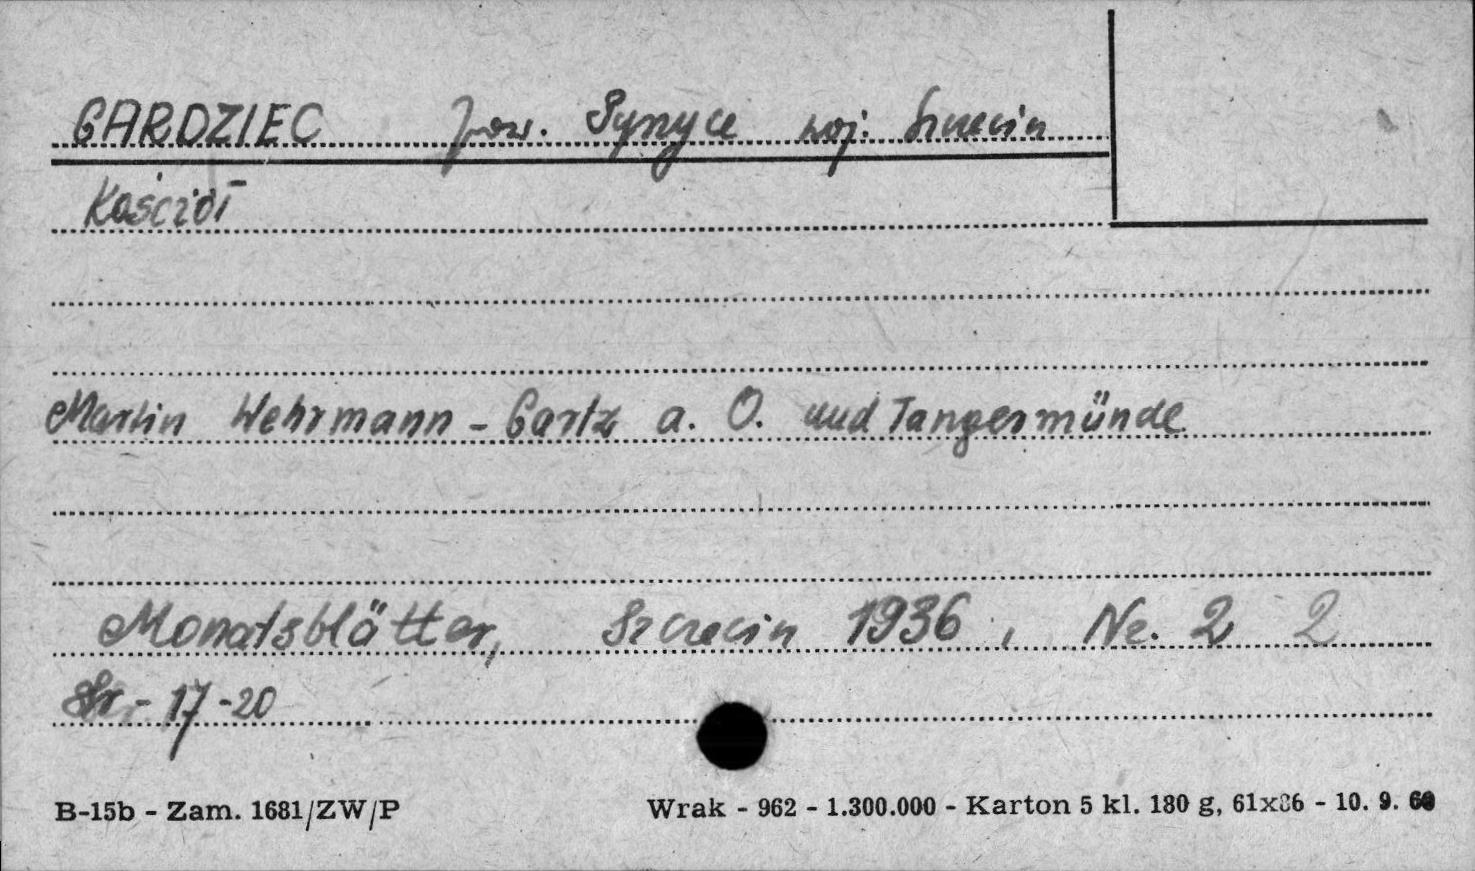 GARDZIEC pow. Pyrzyce woj. Szczecin
Kościół
Martin Wehrmann - Gartz a. O. und Tangermünde
Monatsblätter, Szczecin 1936, Nr. 2 2
Str - 17-20
B-15b - Zam. 1681/ZW/P Wrak - 962 - 1.300.000 - Karton 5 kl. 180 g, 61x86 - 10. 9. 60